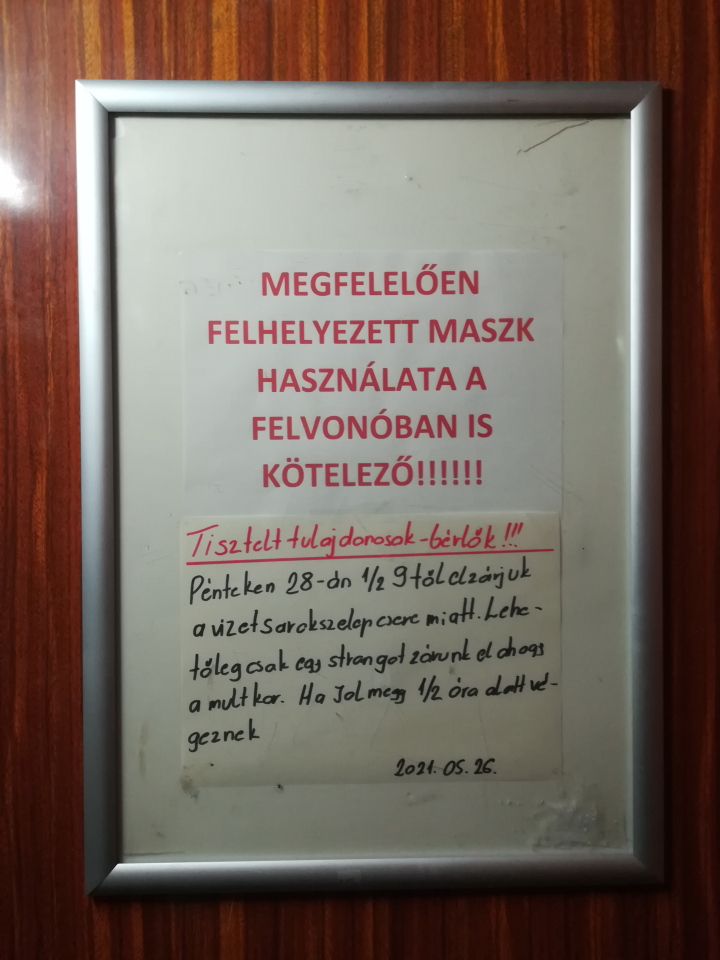 MEGFELELŐEN
FELHELYEZETT MASZK
HASZNÁLATA A
FELVONÓBAN IS
KÖTELEZŐ!!!!!!
Tisztelt tulajdonosok-bérlők!!!
Pénteken 28-án 1/2 9től elzárjuk
a vizet sarokszelep csere miatt. Lehe-
tőleg csak egy strangot zárunk el ahogy
a multkor. Ha Jol megy 1/2 óra alatt vé-
geznek
2021.05.26.